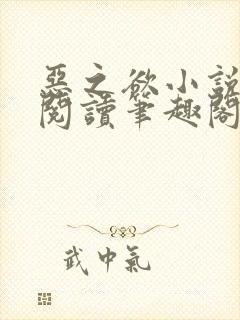 惡之欲小說
閱讀筆趣閣
武中氣